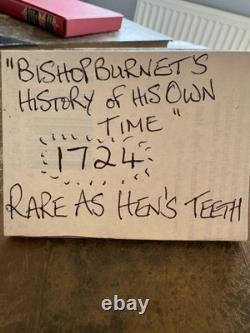 "BISHOP BURNET'S
HISTORY of HIS OWN
TIME"
1724
RARE AS HEN'S TEETH
ebay